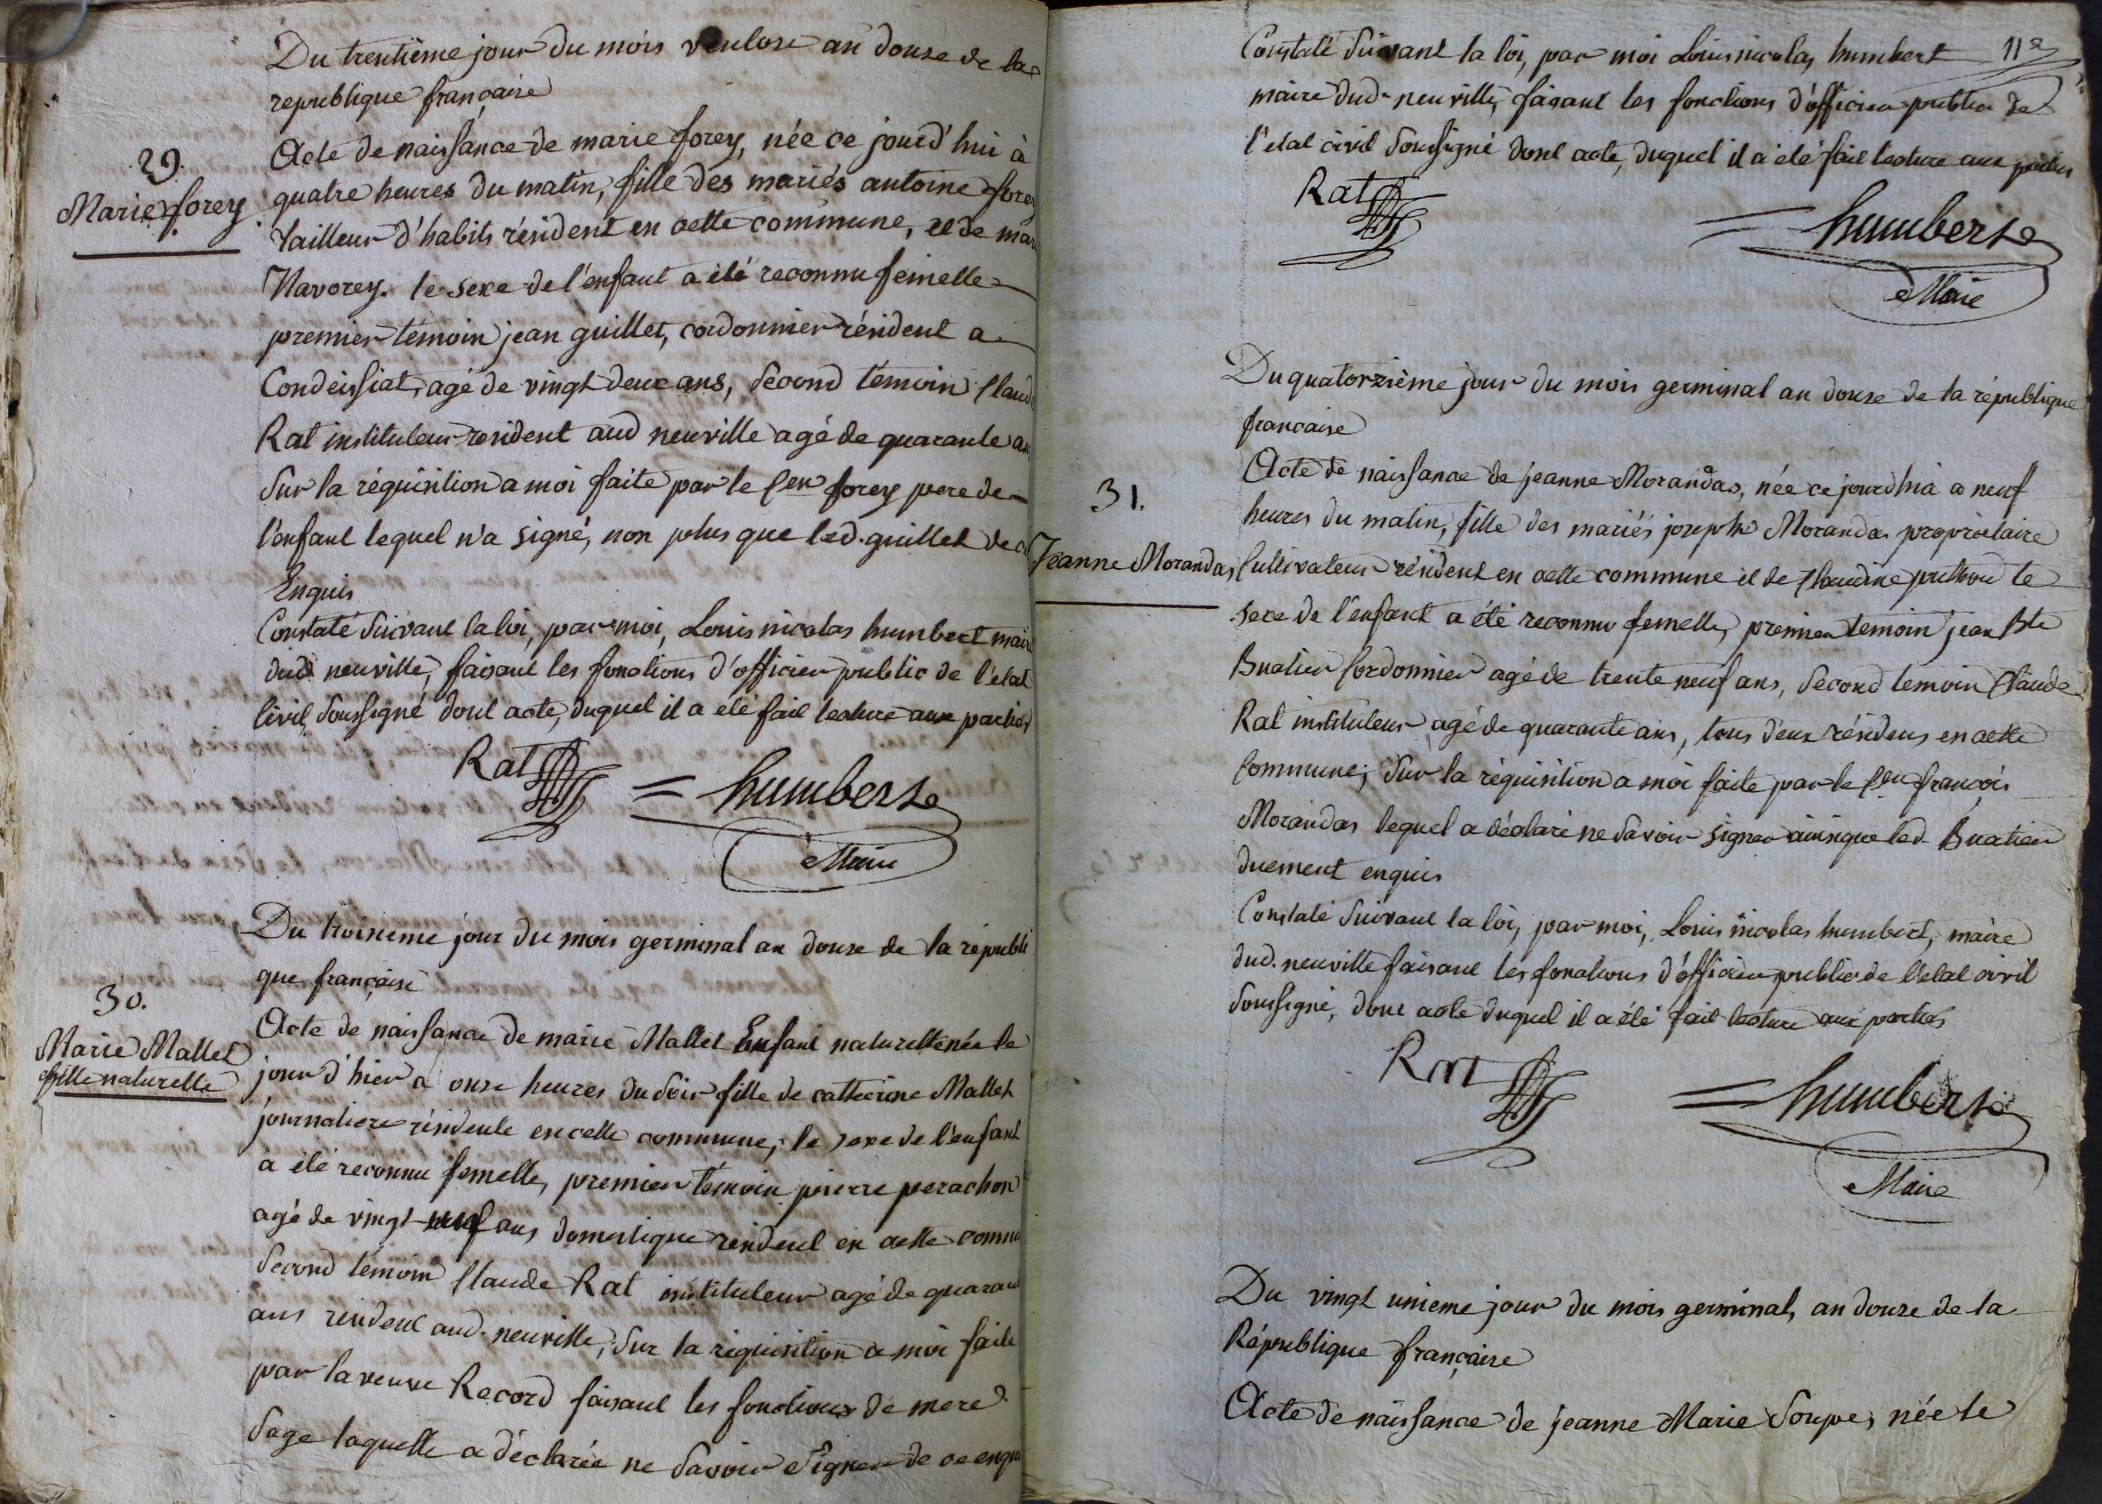 Du trentième jour du mois ventose an douze de la
republique française
29.
Marie forey
Acte de naissance de marie forey, née ce jourd'hui à
quatre heures du matin, fille des mariés antoine forey
tailleur d'habits résident en cette commune, et de marie
Navorey. le sexe de l'enfant a été reconnu femelle
premier témoin jean guillet, cordonnier résident a
Condeissiat, agé de vingt deux ans, Second témoin Claude
Rat instituteur resident aud neuville agé de quarante ans
Sur la réquisition a moi faite par le Cen forey pere de
l'enfant lequel n'a signé, non plus que led. guillet de ce
Enquis
Constaté Suivant la loi, par moi, Louis nicolas humbert maire
dud neuville, faisant les fonctions d'officier public de l'etat
Civil, Soussigné dont acte, duquel il a été fait lecture aux parties
Rat = humbert
Maire
Du troisieme jour du mois germinal an douze de la républi
que française
30.
Marie Mallet
fille naturelle
Acte de naissance de marie Mallet Enfant naturelle née le
jour d'hier a onze heures du Soir fille de catherine Mallet
journaliere résidente en cette commune, le sexe de l'enfant
a été reconnu femelle, premier témoin pierre perachon
agé de vingt neuf ans domestique résident en cette commu
Second témoin Claude Rat instituteur agé de quarante
ans résident aud. neuville, Sur la réquisition a moi faite
par la veuve Record faisant les fonctions de mere
Sage laquelle a déclarée ne Savoir Signer de ce enquise
Constaté Suivant la loi, par moi Louis nicolas humbert
maire dud. neuville, faisant les fonctions d'officier public de
l'etat civil Soussigné dont acte, duquel il a été fait lecture aux parties
Rat = humbert
Maire
Du quatorzième jour du mois germinal an douze de la république
francaise
31.
Jeanne Morandas
Acte de naissance de jeanne Morandas, née ce jourdhui a neuf
heures du matin, fille des mariés joseph Morandas propriétaire
Cultivateur résident en cette commune et de Claudine le
sexe de l'enfant a été reconnu femelle, premier temoin jean Bte
Buatier Cordonnier agé de trente neuf ans, Second temoin Claude
Rat instituteur agé de quarante ans, tous deux résidens en cette
Commune; Sur la réquisition a moi faite par le Cen françois
Morandas lequel a déclaré ne Savoir signer ainsi que led. Buatier
duement enquis
Constaté Suivant la loi, par moi, Louis nicolas humbert, maire
dud. neuville faisant les fonctions d'officier public de l'etat civil
Soussigné, dont acte duquel il a été fait lecture aux parties
Rat = humbert
Maire
Du vingt unieme jour du mois germinal, an douze de la
République française
Acte de naissance de jeanne Marie Soupe, née le